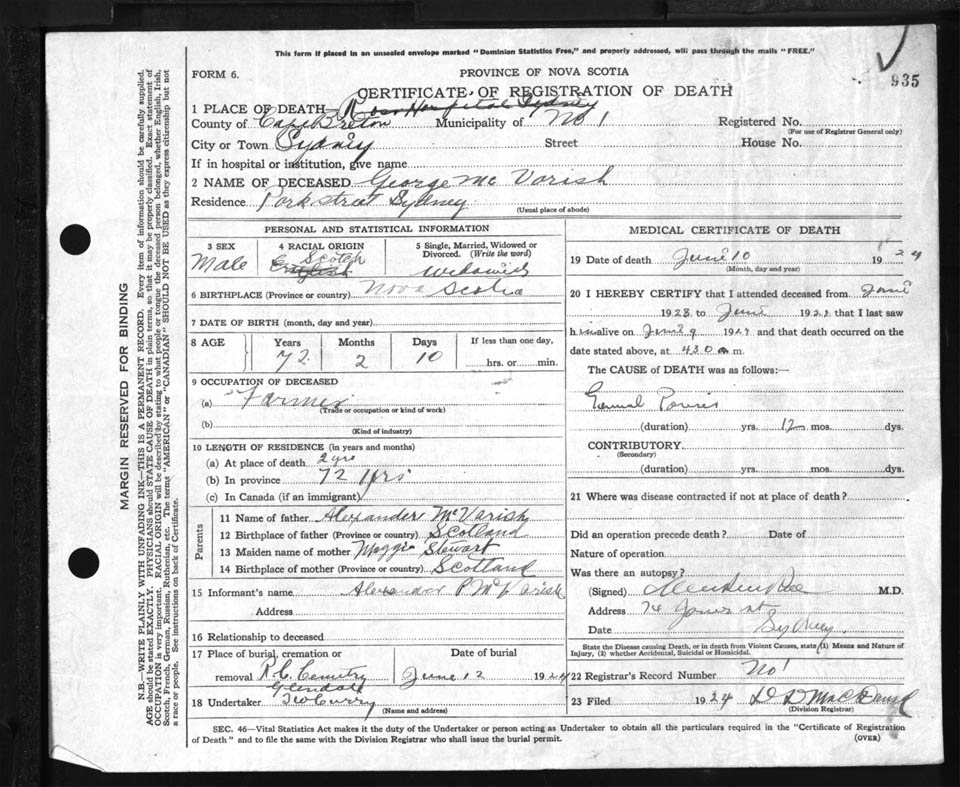 This form if placed in an unsealed envelope marked "Dominion Statistics Free," and properly addressed, will pass through the mails "FREE."
FORM 6.
PROVINCE OF NOVA SCOTIA
935
CERTIFICATE OF REGISTRATION OF DEATH
1 PLACE OF DEATH— Ross Hospital Sydney
County of Cape Breton Municipality of No 1 Registered No.
(For use of Registrar General only)
City or Town Sydney Street House No.
If in hospital or institution, give name
2 NAME OF DECEASED George Mc Varish
Residence Park street Sydney
(Usual place of abode)
PERSONAL AND STATISTICAL INFORMATION
3 SEX
Male
4 RACIAL ORIGIN
Scotch
English
5 Single, Married, Widowed or Divorced. (Write the word)
6 BIRTHPLACE (Province or country) Nova Scotia
7 DATE OF BIRTH (month, day and year)
8 AGE Years Months Days If less than one day,
72 2 10 hrs. or min.
9 OCCUPATION OF DECEASED
(a) Farmer
(Trade or occupation or kind of work)
(b)
(Kind of industry)
10 LENGTH OF RESIDENCE (in years and months)
(a) At place of death 2 yrs
(b) In province 72 yrs
(c) In Canada (if an immigrant)
Parents
11 Name of father Alexander McVarish
12 Birthplace of father (Province or country) Scotland
13 Maiden name of mother Maggie Stewart
14 Birthplace of mother (Province or country) Scotland
15 Informant's name Alexander P McVarish
Address
16 Relationship to deceased
17 Place of burial, cremation or Date of burial
removal R.C. Cemetry June 12 1924
Glendale
18 Undertaker
(Name and address)
MEDICAL CERTIFICATE OF DEATH
19 Date of death June 10 1924
(Month, day and year)
20 I HEREBY CERTIFY that I attended deceased from June
1923 to June 192 that I last saw
h im alive on June 9 192 and that death occurred on the
date stated above, at 430 a m.
The CAUSE of DEATH was as follows:—
(duration) yrs. 12 mos. dys.
CONTRIBUTORY.
(Secondary)
(duration) yrs. mos. dys.
21 Where was disease contracted if not at place of death?
Did an operation precede death? Date of
Nature of operation
Was there an autopsy?
(Signed) M.D.
Address 74 st
Date Sydney
State the Disease causing Death, or in death from Violent Causes, state (1) Means and Nature of
Injury, (2) whether Accidental, Suicidal or Homicidal.
22 Registrar's Record Number No 1
23 Filed 1924 D D MacDonald
(Division Registrar)
SEC. 46—Vital Statistics Act makes it the duty of the Undertaker or person acting as Undertaker to obtain all the particulars required in the "Certificate of Registration
of Death" and to file the same with the Division Registrar who shall issue the burial permit.
(OVER)
MARGIN RESERVED FOR BINDING
N.B.—WRITE PLAINLY WITH UNFADING INK—THIS IS A PERMANENT RECORD. Every item of information should be carefully supplied.
AGE should be stated EXACTLY. PHYSICIANS should STATE CAUSE OF DEATH in plain terms, so that it may be properly classified. Exact statement of
OCCUPATION is very important. RACIAL ORIGIN will be described by stating to what people or tongue the deceased person belonged, whether English, Irish,
Scotch, French, German, Russian, Ruthenian, etc. The terms "AMERICAN" or "CANADIAN" SHOULD NOT BE USED as they express citizenship but not
a race or people. See instructions on back of Certificate.